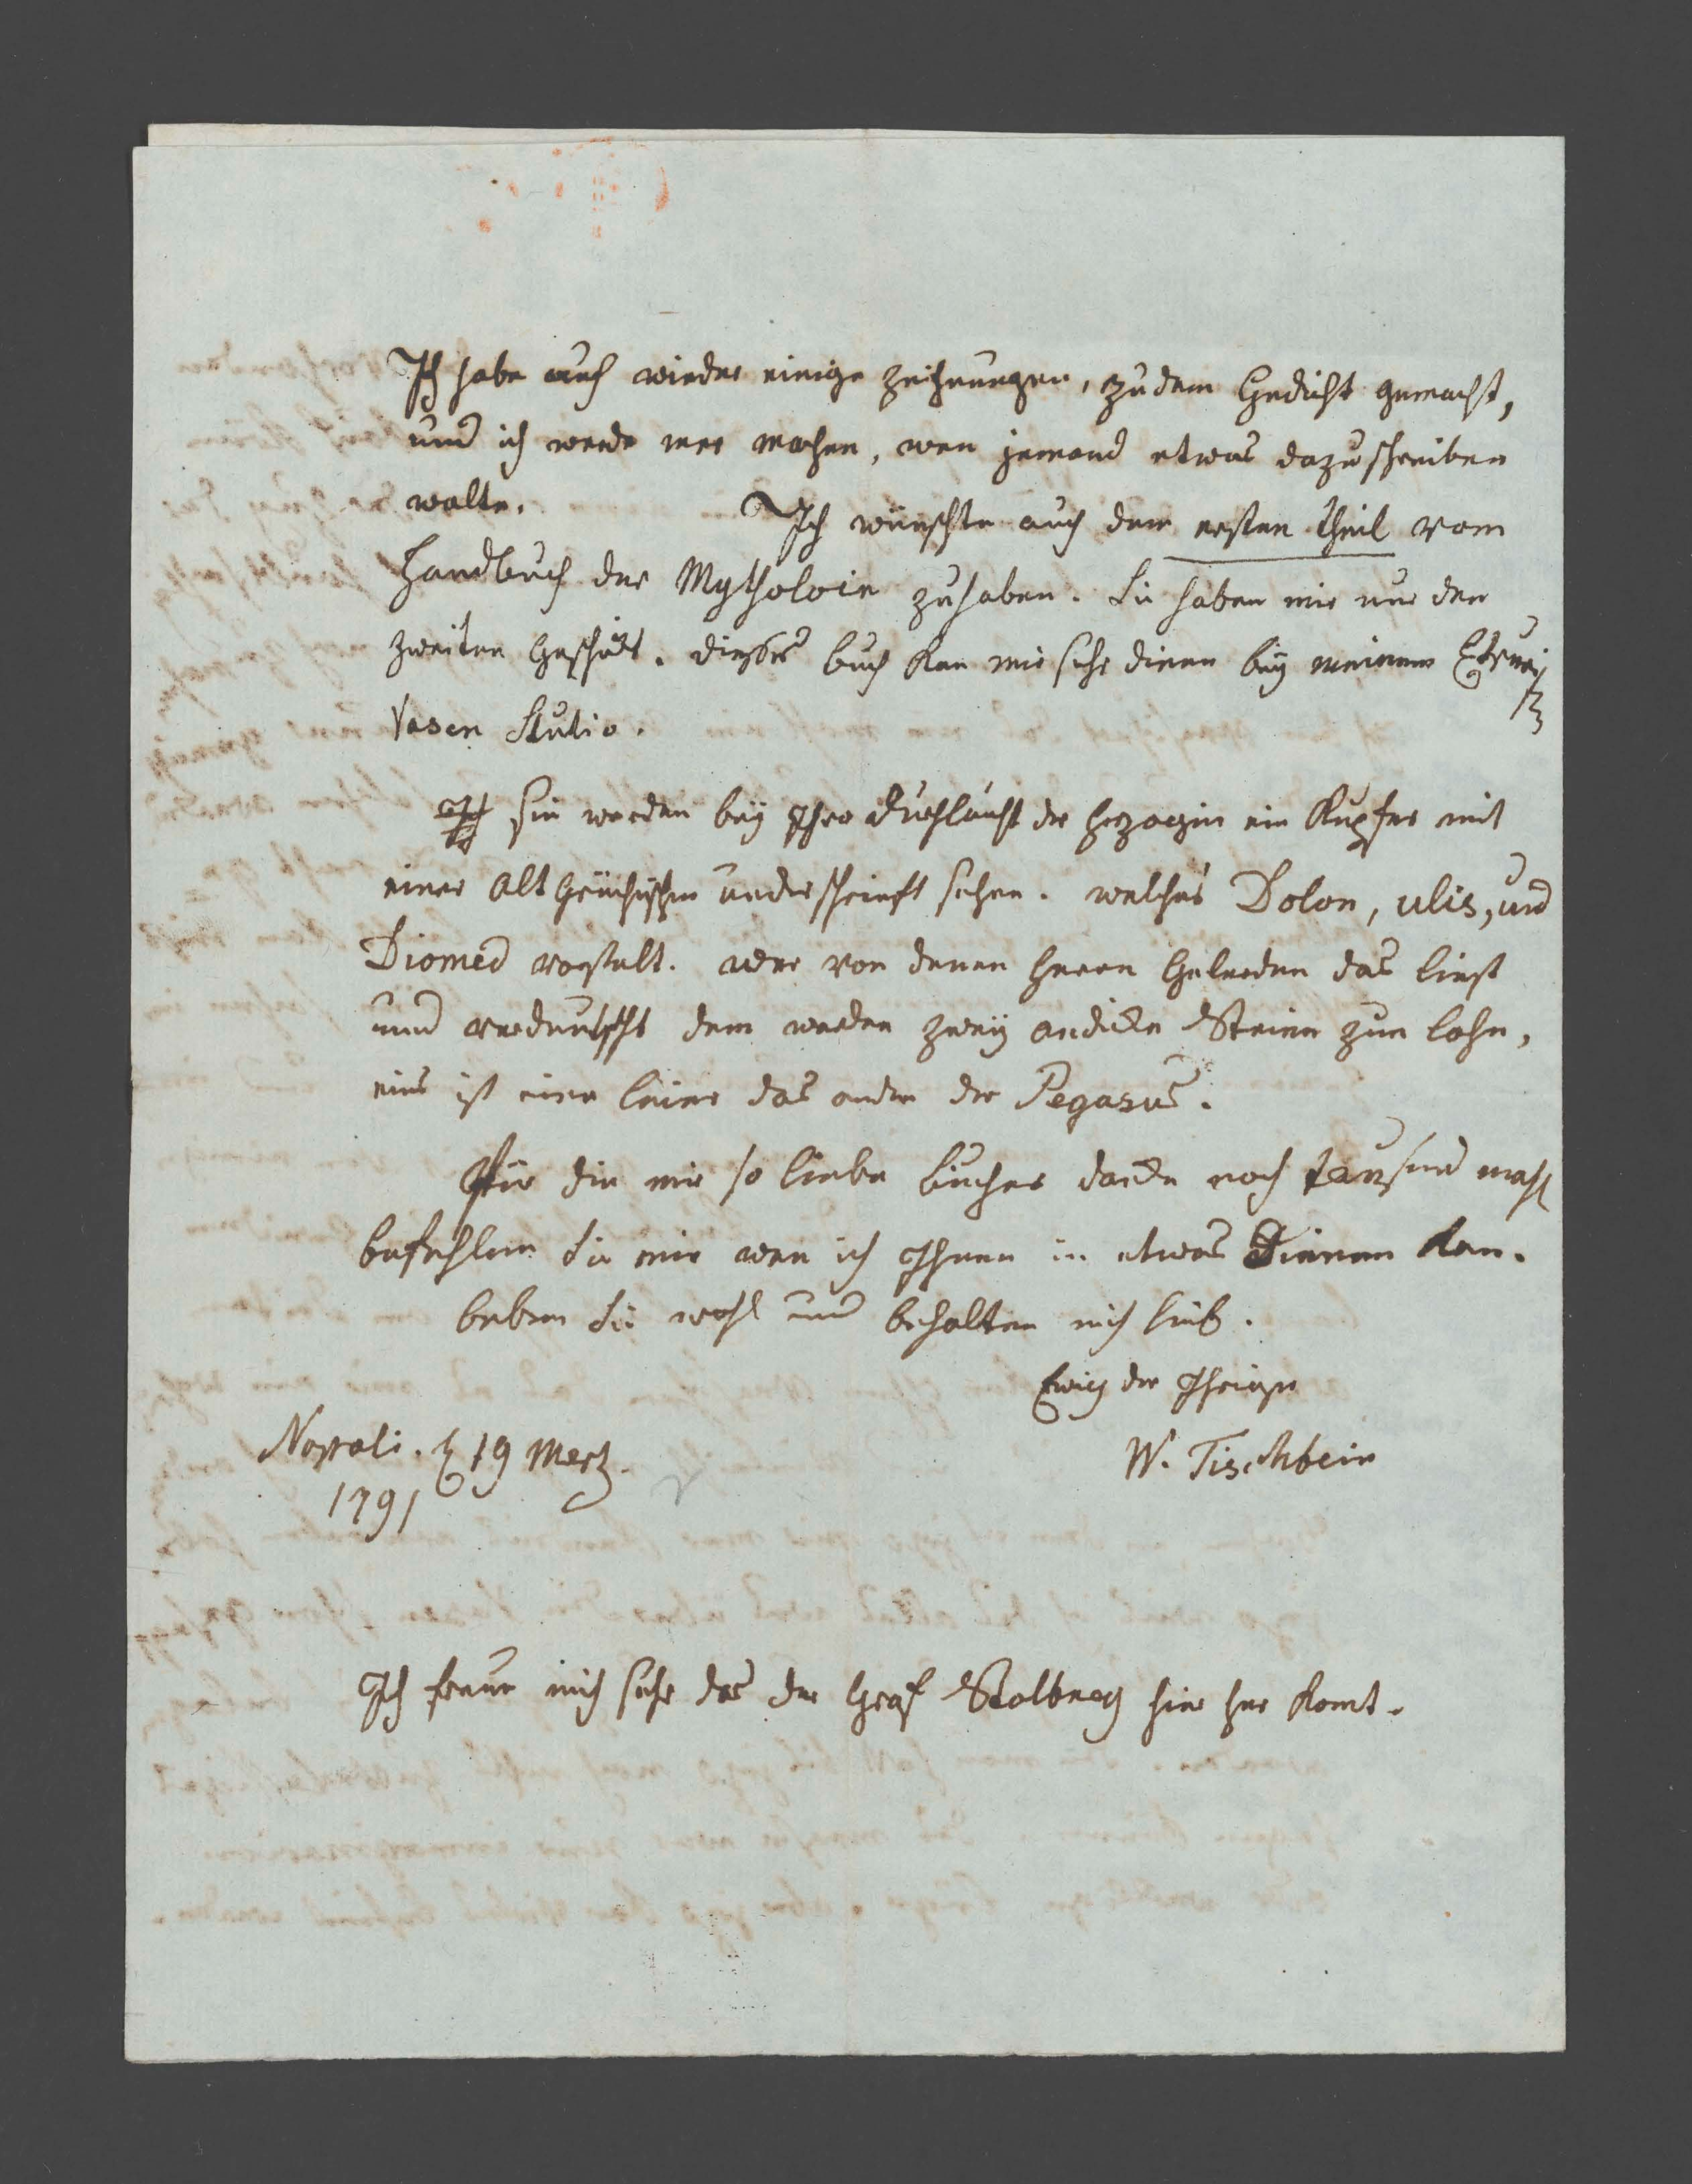 Ich habe auch wieder einige zeichnungen, zu dem Gedicht gemacht,
und ich werde mer machen, wen jemand etwas dazu schreiben
wolte. Ich wünschte auch den ersten theil vom
Handbuch der Mytholoie zu haben. Sie haben mir nur den
zweiten geschickt. dieses buch kan mir sehr dienen bey meinem
Vasen Studio.
Sie werden bey Ihro Durchlaucht der Herzogin ein Kupfer mit
einer alt Grichischen underschrieft sehen. welches Dolon, ulis, und
Diomed vorstelt. wer von denen Herrn Gelerden das liest
und verdeutscht dem werden zwey andicke Steine zum lohn,
eins ist eine leier das andre der Pegasus.
Für die mir so liebe bücher dancke noch tausend mahl
befehlen Sie mir wen ich Ihnen in etwas Dienen kan.
leben Sie wohl und behalten mich lieb.
Ewig der Ihrige
W. Tischbein
Nappoli. d 19 Mertz.
1791
Ich freue mich sehr das der Graf Stolberg hier her komt.